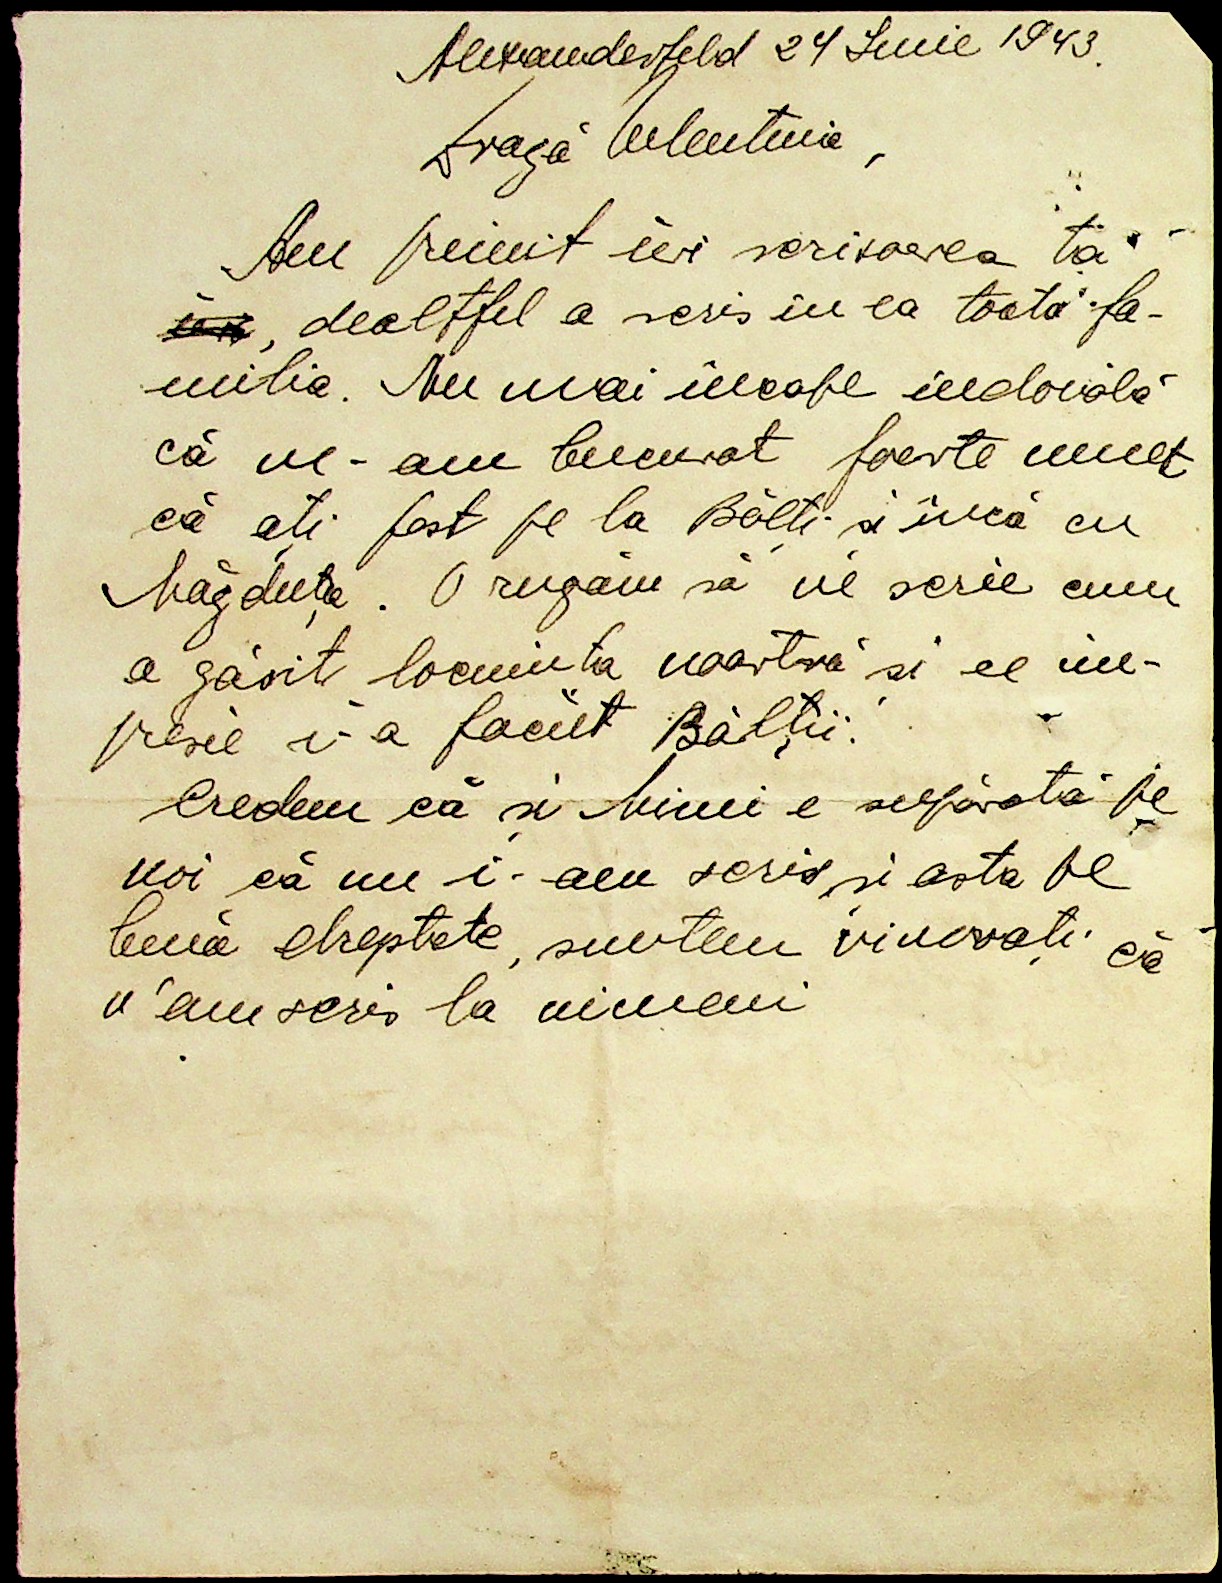 Alexanderfeld 24 Iunie 1943.
Dragă Valentina,
Am primit ieri scrisoarea ta
, dealtfel a scris în ea toată fa-
milia. Nu mai încape îndoială
că ne-am bucurat foarte mult
că ați fost pe la Bălți și încă cu
Măgduța. O rugăm să ne scrie cum
a găsit locuința noastră și ce im-
presie i-a făcut Bălții.
Credem că și Mimi e supărată pe
noi că nu i-am scris, și asta pe
bună dreptate, suntem vinovați că
n'am scris la nimeni